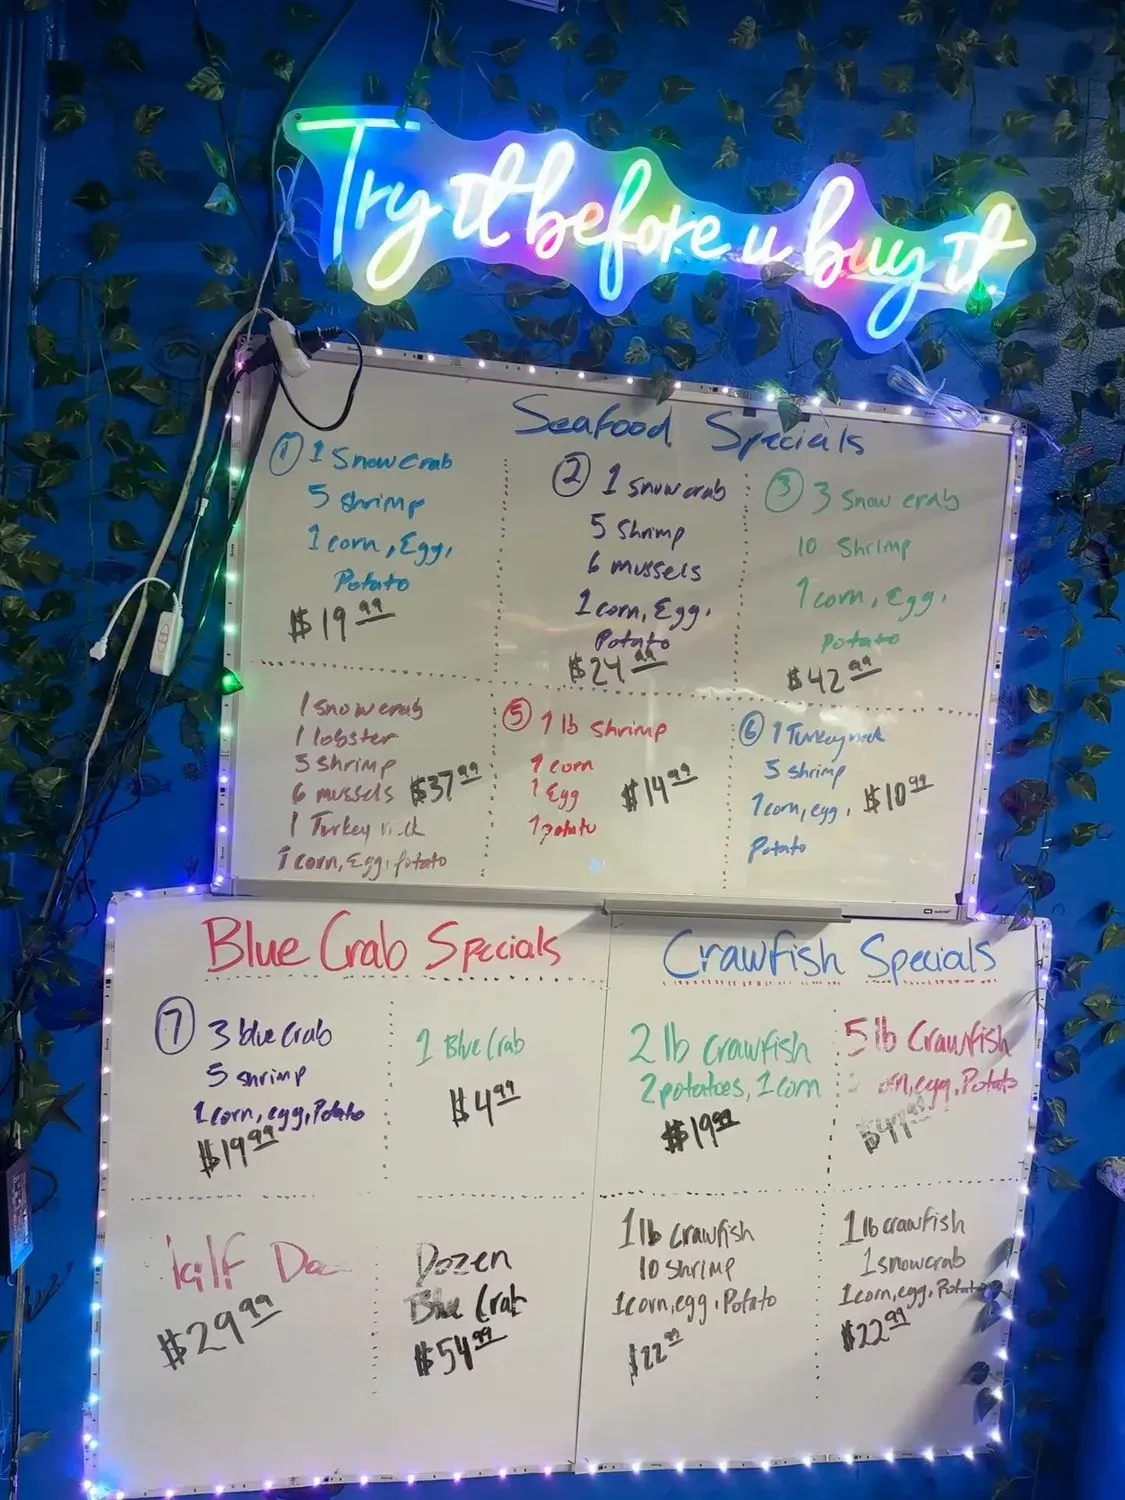 Try it before u buy it
Seafood Specials
① 1 Snow crab
5 shrimp
1 corn, Egg,
Potato
$19.99
② 1 snow crab
5 shrimp
6 mussels
1 corn, Egg,
Potato
$24.99
③ 3 snow crab
10 Shrimp
1 corn, Egg,
potato
$42.99
1 snow crab
1 lobster
5 shrimp
6 mussels $37.99
1 Turkey
1 corn, Egg, potato
⑤ 1 lb shrimp
1 corn
1 Egg
1 potato
$14.99
⑥ 1 Turkey neck
5 shrimp
1 corn, egg, $10.99
Potato
Blue Crab Specials
⑦ 3 blue Crab
5 shrimp
1 corn, egg, Potato
$19.99
1 Blue Crab
$4.99
$29.99
Dozen
Blue Crab
$54.99
Crawfish Specials
2 lb crawfish
2 potatoes, 1 corn
$19.99
5 lb Crawfish
egg, Potato
1 lb crawfish
10 shrimp
1 corn, egg, Potato
$22.99
1 lb crawfish
1 snow crab
1 corn, egg, Potato
$22.99